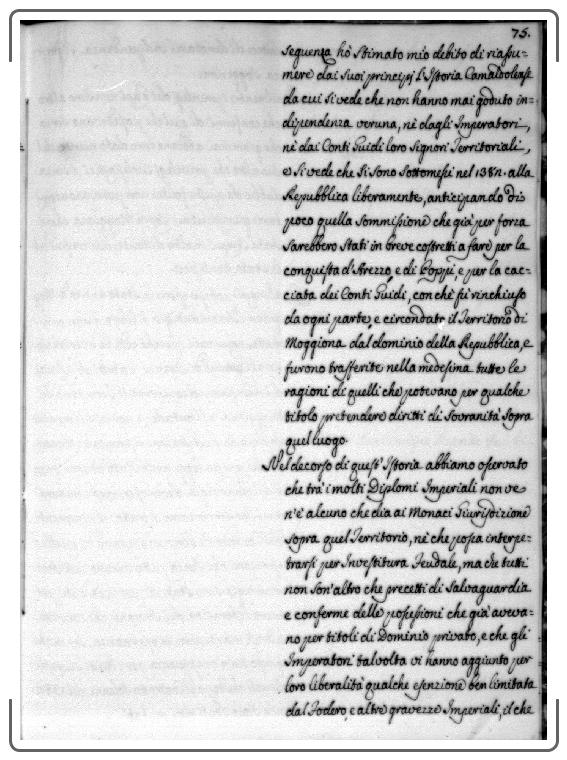 75.
sequenza hò stimato mio debito di riassu=
mere dai suoi principj l'Istoria Camaldolense
da cui si vede che non hanno mai goduto in=
dipendenza veruna, nè dagli Imperatori,
nè dai Conti Guidi loro Signori Territoriali,
e si vede che si sono sottomessi nel 1382. alla
Repubblica liberamente, anticipando di
poco quella sommissione che già per forza
sarebbero stati in breve costretti a fare per la
conquista d'Arezzo e di Poppi, e per la cac=
ciata dei Conti Guidi, con che fù rinchiuso
da ogni parte, e circondato il Territorio di
Moggiona dal dominio della Repubblica, e
furono trasferite nella medesima tutte le
ragioni di quelli che potevano per qualche
titolo pretendere diritti di Sovranità sopra
quel luogo.
Nel decorso di quest'Istoria abbiamo osservato
che trà i molti Diplomi Imperiali non ve
n'è alcuno che dia ai Monaci Giurisdizione
sopra quel Territorio, nè che possa interpe=
trarsi per Investitura Feudale, ma che tutti
non son'altro che precetti di Salvaguardia
e conferme delle possessioni che già aveva=
no per titoli di Dominio privato, e che gli
Imperatori talvolta vi hanno aggiunto per
loro liberalità qualche esenzione ben limitata
dal Fodero, e altre gravezze Imperiali, il che